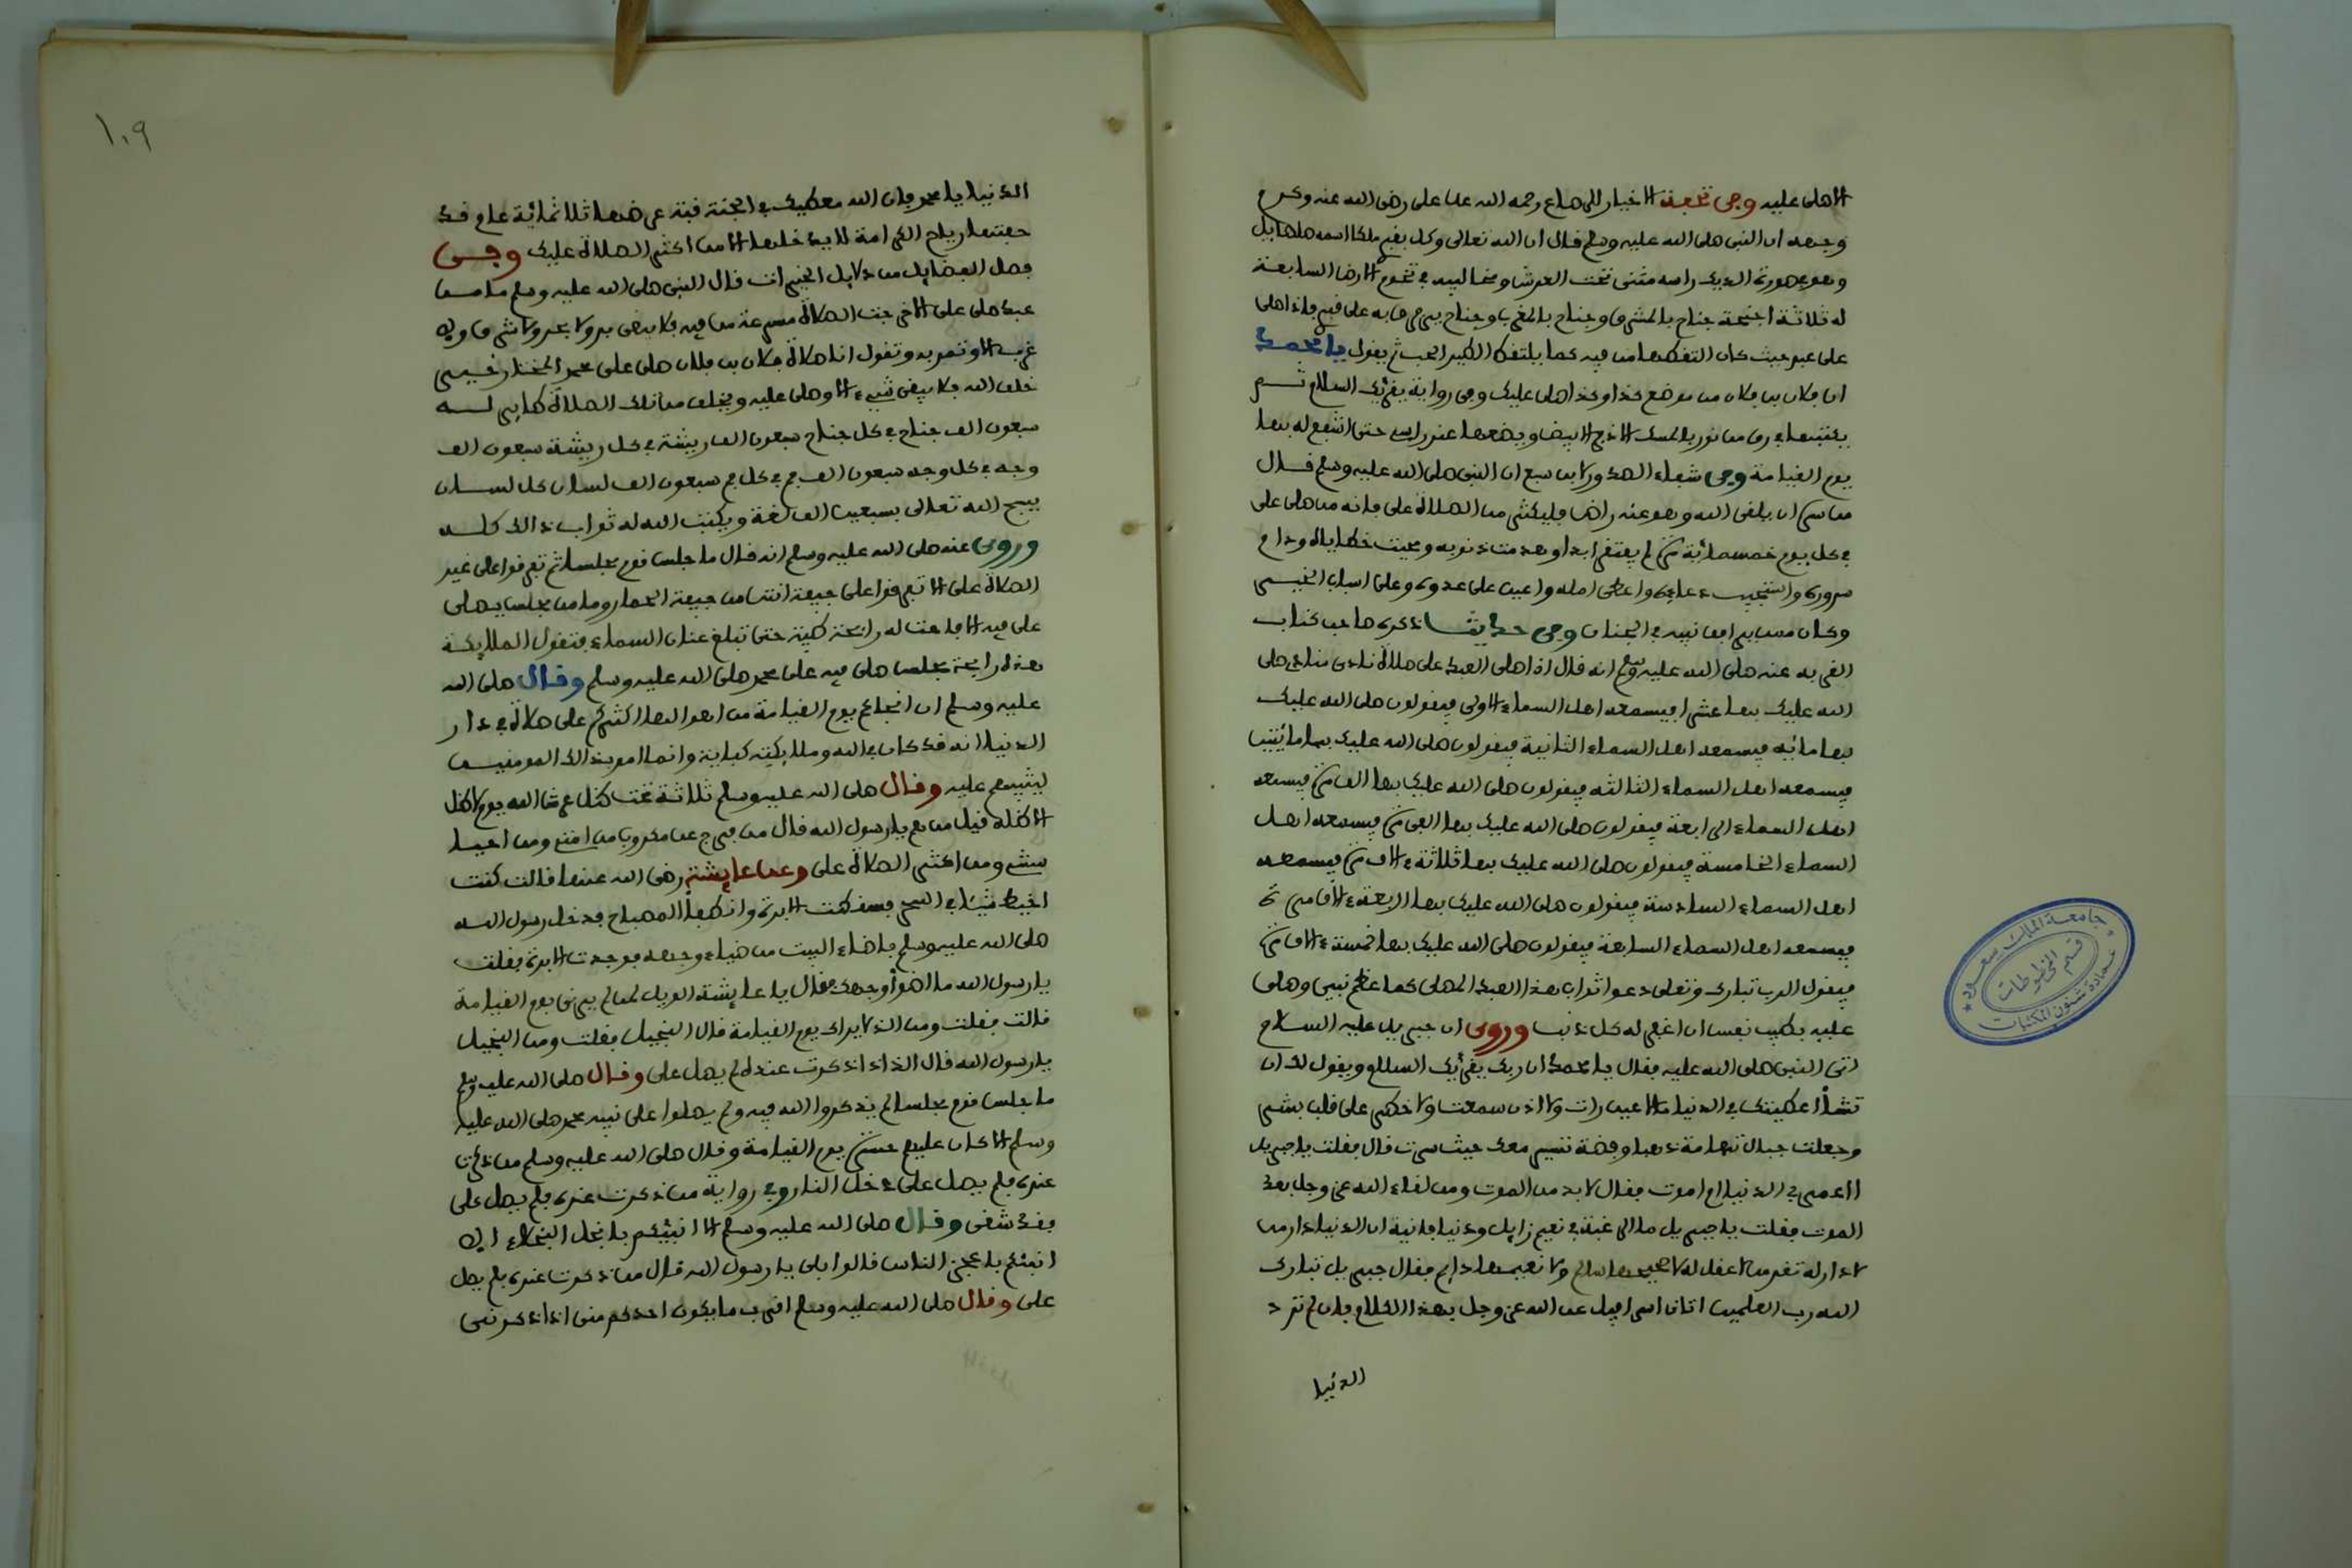 الا صلى عليه وفي تحفة الاخيار للرصاع رحمه الله عن على رضى الله عنه وكرم
وجهه ان النبى صلى الله عليه وسلم قال ان الله تعالى وكل بقبر ملكا اسمه صلصايل
وهو في صورة الديك راسه مثنى تحت العرش ومخالبه في تخوم الارض السابعة
له ثلاثة اجنحة جناح بالمشرق وجناح بالمغرب وجناح يرفرف به على قبر فاذا صلى
على عبد حيث كان التقطها من فيه كما يلتقط الطير الحب ثم يقول يا محمد
ان فلان بن فلان من موضع كذا وكذا صلى عليك وفي رواية يقرئك السلام ثم
يكتبها في رق من نور بالمسك الاذفر الابيض ويضعها عند راسي حتى اشفع له بها
يوم القيامة وفي شفاء الصدور لابن سبع ان النبى صلى الله عليه وسلم قال
من سره ان يلقى الله وهو عنه راض فليكثر من الصلاة على فانه من صلى على
في كل يوم خمسمائة مرة لم يفتقر ابدا وهدمت ذنوبه ومحيت خطاياه ودام
سروره واستجيب دعاءه واعطى امله واعين على عدوه وعلى اسباب الخير
وكان ممن يرافق نبيه في الجنان وفي حديث ذكره صاحب كتاب
القربه عنه صلى الله عليه وسلم انه قال اذا صلى العبد على صلاة نادى مناد صلى
الله عليك بها عشرا فيسمعه اهل السماء الاولى فيقولون صلى الله عليك
بها مائه فيسمعه اهل السماء الثانية فيقولون صلى الله عليك بها مائتين
فيسمعه اهل السماء الثالثه فيقولون صلى الله عليك بها الف مرة فيسمعه
اهل السماء الرابعة فيقولون صلى الله عليك بها الفى مرة فيسمعه اهل
السماء الخامسة فيقولون صلى الله عليك بها ثلاثة ءالاف مرة فيسمعه
اهل السماء السادسة فيقولون صلى الله عليك بها اربعة ءالاف مرة
فيسمعه اهل السماء السابعة فيقولون صلى الله عليك بها خمسة ءالاف مرة
فيقول الرب تبارك وتعلى دعوا ثواب هذا العبد المصلى كما عظم نبيي وصلى
عليه بطيب نفس ان اغفر له كل ذنب وروى ان جبريل عليه السلام
اتى النبى صلى الله عليه فقال يا محمد ان ربك يقرئك السلم ويقول لك ان
تشأ اعطيتك في الدنيا ما لا عين رات ولا اذن سمعت ولا خطر على قلب بشر
وجعلت جبال تهامة ذهبا وفضة تسير معك حيث سرت قال فقلت يا جبريل
في الدنيا ام اموت فقال لا بد من الموت ومن لقاء الله عز وجل بعد
الموت فقلت يا جبريل ما لى رغبة في نعيم زايل ودنيا فانية ان الدنيا دار من
لا دار له تغر من لا عقل له لا صحيحها سالم ولا نعيمها دايم فقال جبريل تبارك
الله رب العلمين اتانا اسرافيل عن الله عز وجل بهذا الكلام فان لم ترد
الدنيا
١٠٩
الدنيا يا محمد فان الله معطيك في الجنة قبة عرضها ثلاثمائة عام قد
حفتها رياح الكرامة لا يدخلها الا من اكثر الصلاة عليك وفي
فصل الفضايل من دلايل الخيرات قال النبى صلى الله عليه وسلم ما من
عبد صلى على الا خرجت الصلاة مسرعة من فيه فلا يبقى بر ولا بحر ولا شرق ولا
غرب الا وتمر به وتقول انا صلاة فلان بن فلان صلى على محمد المختار خير
خلق الله فلا يبقى شىء الا وصلى عليه ويخلق من تلك الصلاة طاير له
سبعون الف جناح في كل جناح سبعون الف ريشة في كل ريشة سبعون الف
وجه في كل وجه سبعون الف فم في كل فم سبعون الف لسان كل لسان
يسبح الله تعالى بسبعين الف لغة ويكتب الله له ثواب ذالك كله
وروى عنه صلى الله عليه وسلم انه قال ما جلس قوم مجلسا ثم تفرقوا على غير
الصلاة على الا تفرقوا على جيفة انتن من جيفة الحمار وما من مجلس يصلى
على فيه الا فاحت له رائحة طيبة حتى تبلغ عنان السماء فتقول المليكة
هذه رايحة مجلس صلى فيه على محمد صلى الله عليه وسلم وقال صلى الله
عليه وسلم ان انجاكم يوم القيامة من اهوالها اكثركم على صلاة في دار
الدنيا انه قد كان في الله ومليكته كفاية وانما امر بذالك المومنين
ليثيبهم عليه وقال صلى الله عليه وسلم ثلاثة تحت ظل عرش الله يوم لا ظل
الا ظله قيل من هم يا رسول الله قال من فرج عن مكروب من امتى ومن احيا
سنتى ومن اكثر الصلاة على وعن عايشة رضى الله عنها قالت كنت
اخيط شيئا في السحر فسقطت الابرة وانطفأ المصباح فدخل رسول الله
صلى الله عليه وسلم فاضاء البيت من ضياء وجهه فوجدت الابرة فقلت
يا رسول الله ما اضوأ وجهك فقال يا عايشة الويل لمن لم يرنى يوم القيامة
قالت فقلت ومن الذ لا يراك يوم القيامة قال البخيل فقلت ومن البخيل
يا رسول الله قال الذ اذا ذكرت عنده لم يصل على وقال صلى الله عليه وسلم
ما جلس قوم مجلسا لم يذكروا الله فيه ولم يصلوا على نبيه محمد صلى الله عليه
وسلم الا كان عليهم حسرة يوم القيامة وقال صلى الله عليه وسلم من ذكرت
عنده فلم يصل على دخل النار وفي رواية من ذكرت عنده فلم يصل على
فقد شقى وقال صلى الله عليه وسلم الا انبئكم بابخل البخلاء الا
انبئكم باعجز الناس قالوا بلى يا رسول الله قال من ذكرت عنده فلم يصل
على وقال صلى الله عليه وسلم اقرب ما يكون احدكم منى اذا ذكرنى
جامعة الملك سعود
قسم المخطوطات
عمادة شئون المكتبات